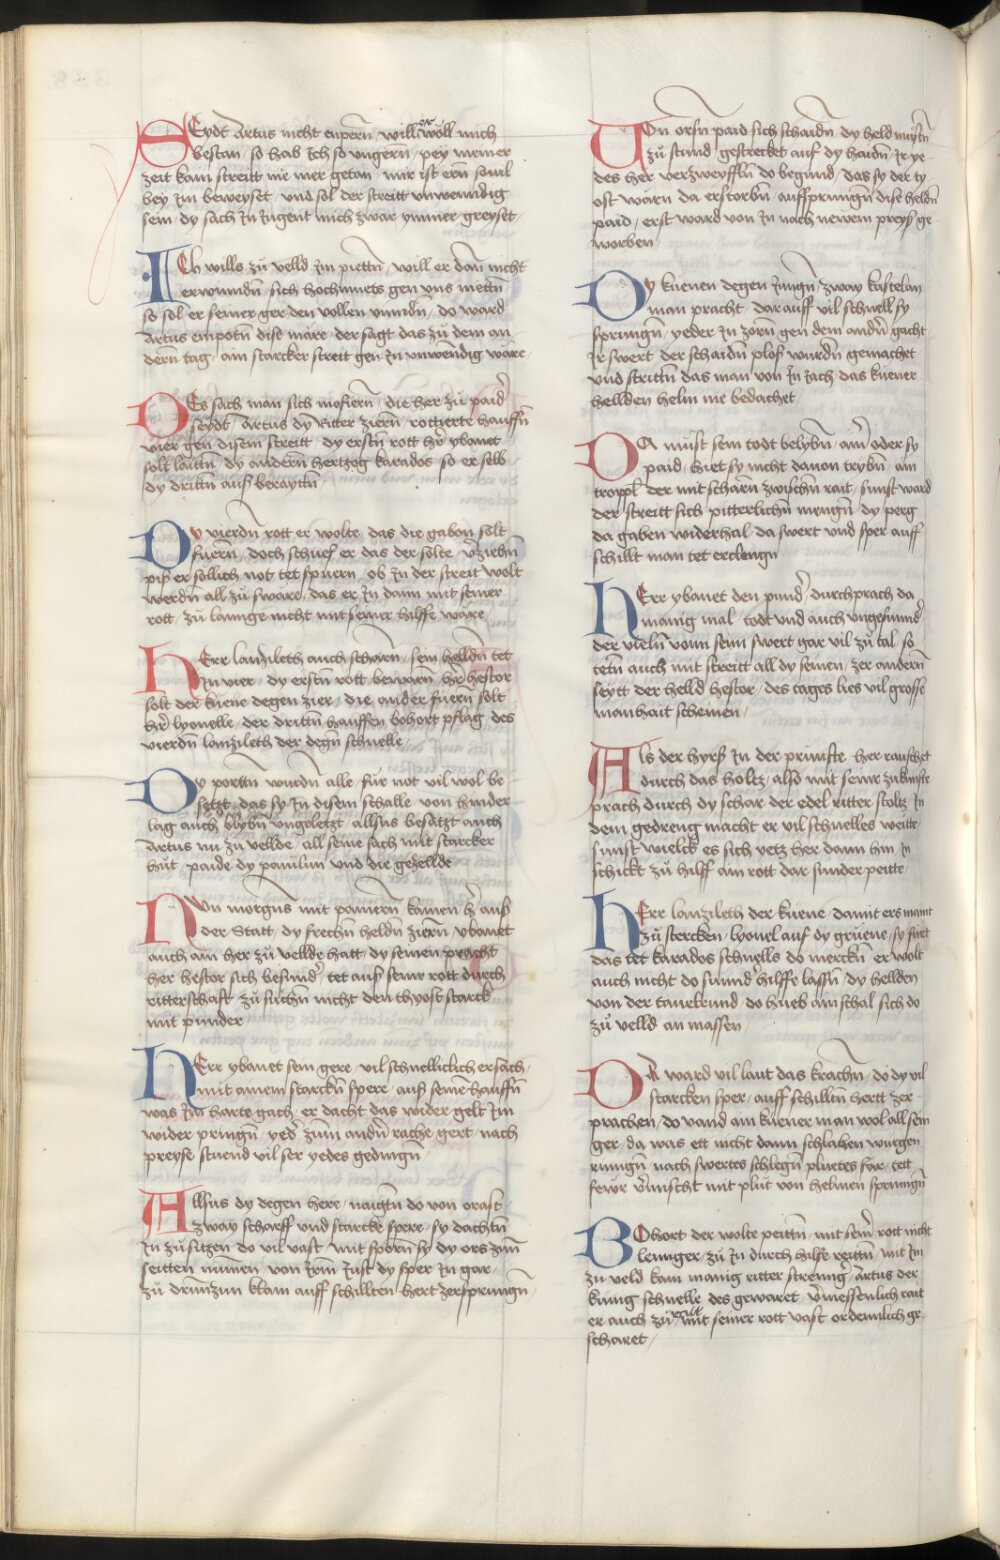 SEydt Artus nicht enpern̄ will er wöll mich
bestan / so hab Ich so vngern̄ / pey meiner
zeit kain streitt nie mer getan / mir ist ern̄ souil
bey Im beweyset / vnd sol der streitt vnwenndig
sein / dy sach In Iugent mich zwar ymmer greyset /
ICh wills zů velld Im piettn̄ / will er dan̄ nicht
erwinndn̄ / sich hochmuets gen vns niettn̄
so sol er seiner ger den vollen vinndn̄ / do ward
Artus enpotn̄ dise märe / der sagt das zů dem an
dern̄ tag / ain starcker streit gen In vnwenndig wäre /
DEs sach man sich mosiern̄ / die her zů paid̄
seydt / Artus dy Ritter ziern̄ / rottierte hauffn̄
vier gen disem streitt / dy erstn̄ rott her̄ ybanet
solt laittn̄ / dy andern̄ hertzog karados / so er selb
dy drittn̄ auß beraytn̄
DY vierdn̄ rott er wolte / das die gabon solt
fuern̄ / doch schuef er das der solte v̄ziehn̄
piß er sollich not tet spuern̄ / ob In der streit wolt
werdn̄ all zů sware / das er In dann mit seiner
rott / zů lannge nicht mit seiner hilffe wäre
HErr lanzileth auch scharn̄ / sein helldn̄ tet
In vier / dy erstn̄ rott bewarn̄ / her̄ hestor
solt der kuene degen zier / die ander fuern̄ solt
her̄ lyonelle / der drittn̄ hauffen bohort pflag / des
vierdn̄ lanzileth der degn̄ schnelle /
DY portn̄ wurdn̄ alle / fur not vil wol be
setzt / das sy In disem schalle / von hinder
lag auch blybn̄ vngeletzt / allsus besatzt auch
Artus nu zů vellde / all seine sach mit starcker
hůt / paide dy pauilun vnd die gezellde
NUn morgns mit paniern̄ kamen h̄ auß
der Statt / dy frechn̄ heldn̄ ziern̄ / ybanet
auch ain her zů vellde hatt / dy seinen pracht
her hestor sich besund̄ / tet auß seiner rott durch
ritterschafft zů suchn̄ nicht den thyost starck
mit punder
HErr ybanet sein gere / vil schnelliclich ersach /
mit ainem starckn̄ spere / auß seiner hauffn̄
was Im harte gach / er dacht das wider gelt Im
wider pringn̄ / yed̄ zum andn̄ rache gert / nach
preyse stuend vil ser yedes gedingn̄ /
ALlsus dy degen here / naigtn̄ do von orast
zway scharff vnd starcke spere / sy dachtn̄
In zů sitzen do vil vast / mit sporn̄ sy dy ors zum
seitten nämen / von Irm Iust dy sper In gar /
zů drunzun klain auff schillten hert zersprungn̄ /
VOn orsn̄ paid sich schaidn̄ / dy held mustn̄
zů stund / gestrecket auf dy haidn̄ / Ir ye
des her verzweyffln̄ do begund / das sy der ty
ost waren da erstorbn̄ / auffsprungn̄ dise heldn̄
paid / erst ward von In nach newem preyß ge
worben /
DY kuenen degen Iungn̄ / zway kastelan
man pracht / dar auff vil schnell sy
sprungn̄ / yeder In zorn̄ gen dem andn̄ gacht
Ir swert der schaidn̄ ploß wurdn̄ gemachet
vnd strittn̄ das man von In Iach / das kuener
hellden helm nie bedachet
DA muest sein todt belybn̄ / ain̄ oder sy
paid / hiet sy nicht dauon trybn̄ / ain
troppl̄ der mit scharn̄ zwischn̄ rait / sunst ward
der streitt sich pitterlichn̄ mengn̄ / dy perg
da gaben widerhal / da swert vnd sper auff
schillt man tet erclengn̄
HErr ybanet den pund̄ / durchprach da
manig mal / todt vnd auch vngesund̄
der vieln̄ vonn seim swert gar vil zů tal / so
tetn̄ auch mit streitt all dy seinen / zer andern̄
seytt der helld hestor / des tages lies vil grosse
manhait scheinen /
ALs der hyrß In der prunste / her rauschet
durch das holtz / also mit seiner zukunfte
prach durch dy schar der edel ritter stoltz / In
dem gedreng macht er vil schnelles weitte /
sunst wielck es sich yetz her dann hin / In
schickt zů hilff ain rott dar sunder peitte /
HErr lanzileth der kuene / damit ers maint
zů stercken / lyonel auf dy gruene / sy furt
das tet karados schnells do merckn̄ / er wolt
auch nicht do sunnd hilffe lassn̄ / dy hellden
von der tauelrund / do hueb ain schal sich do
zů velld an massen
DA ward vil laut das krachn̄ / do dy vil
starcken sper / auff schilltn̄ hertt zer
prachen / do vand ain kuener man wol all sein
ger / da was ett nicht dann schlahen wurgen
ringn̄ / nach swertes schlegn̄ pluetes far / tett
fewr v̄mischt mit plůt von helmen springn̄
BOhort der wolte peittn̄ / mit sein̄ rott nicht
lennger / zů In durch hilfe reittn̄ / mit Im
zu veld kam manig ritter strenng / Artus der
kunig schnelle des gewaret / v̄messenlich rait
er auch zů rait mit seiner rott vast ordennlich ge
scharet /